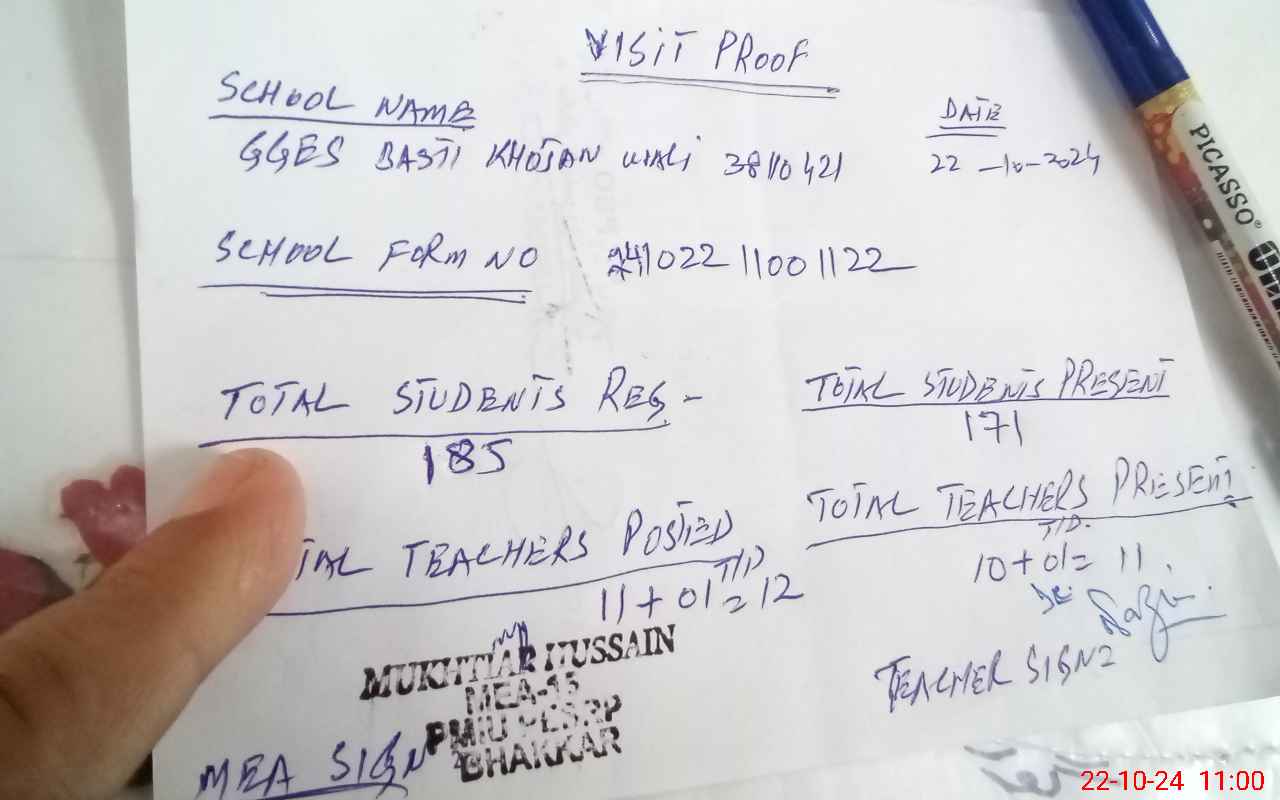 VISIT PROOF
SCHOOL NAME
DATE
GGES BASTI KHOJAN WALI 38110421
22-10-2024
SCHOOL FORM NO 241022 11001122
TOTAL STUDENTS REG-
185
TOTAL STUDENTS PRESENT
171
TAL TEACHERS POSTED
T/D
11+01=12
TOTAL TEACHERS PRESENT
T/D.
10+01= 11.
TEACHER SIGN
MUKHTIAR HUSSAIN
MEA-15
PMIU PESRP
BHAKKAR
MEA SIGN
PICASSO
22-10-24 11:00